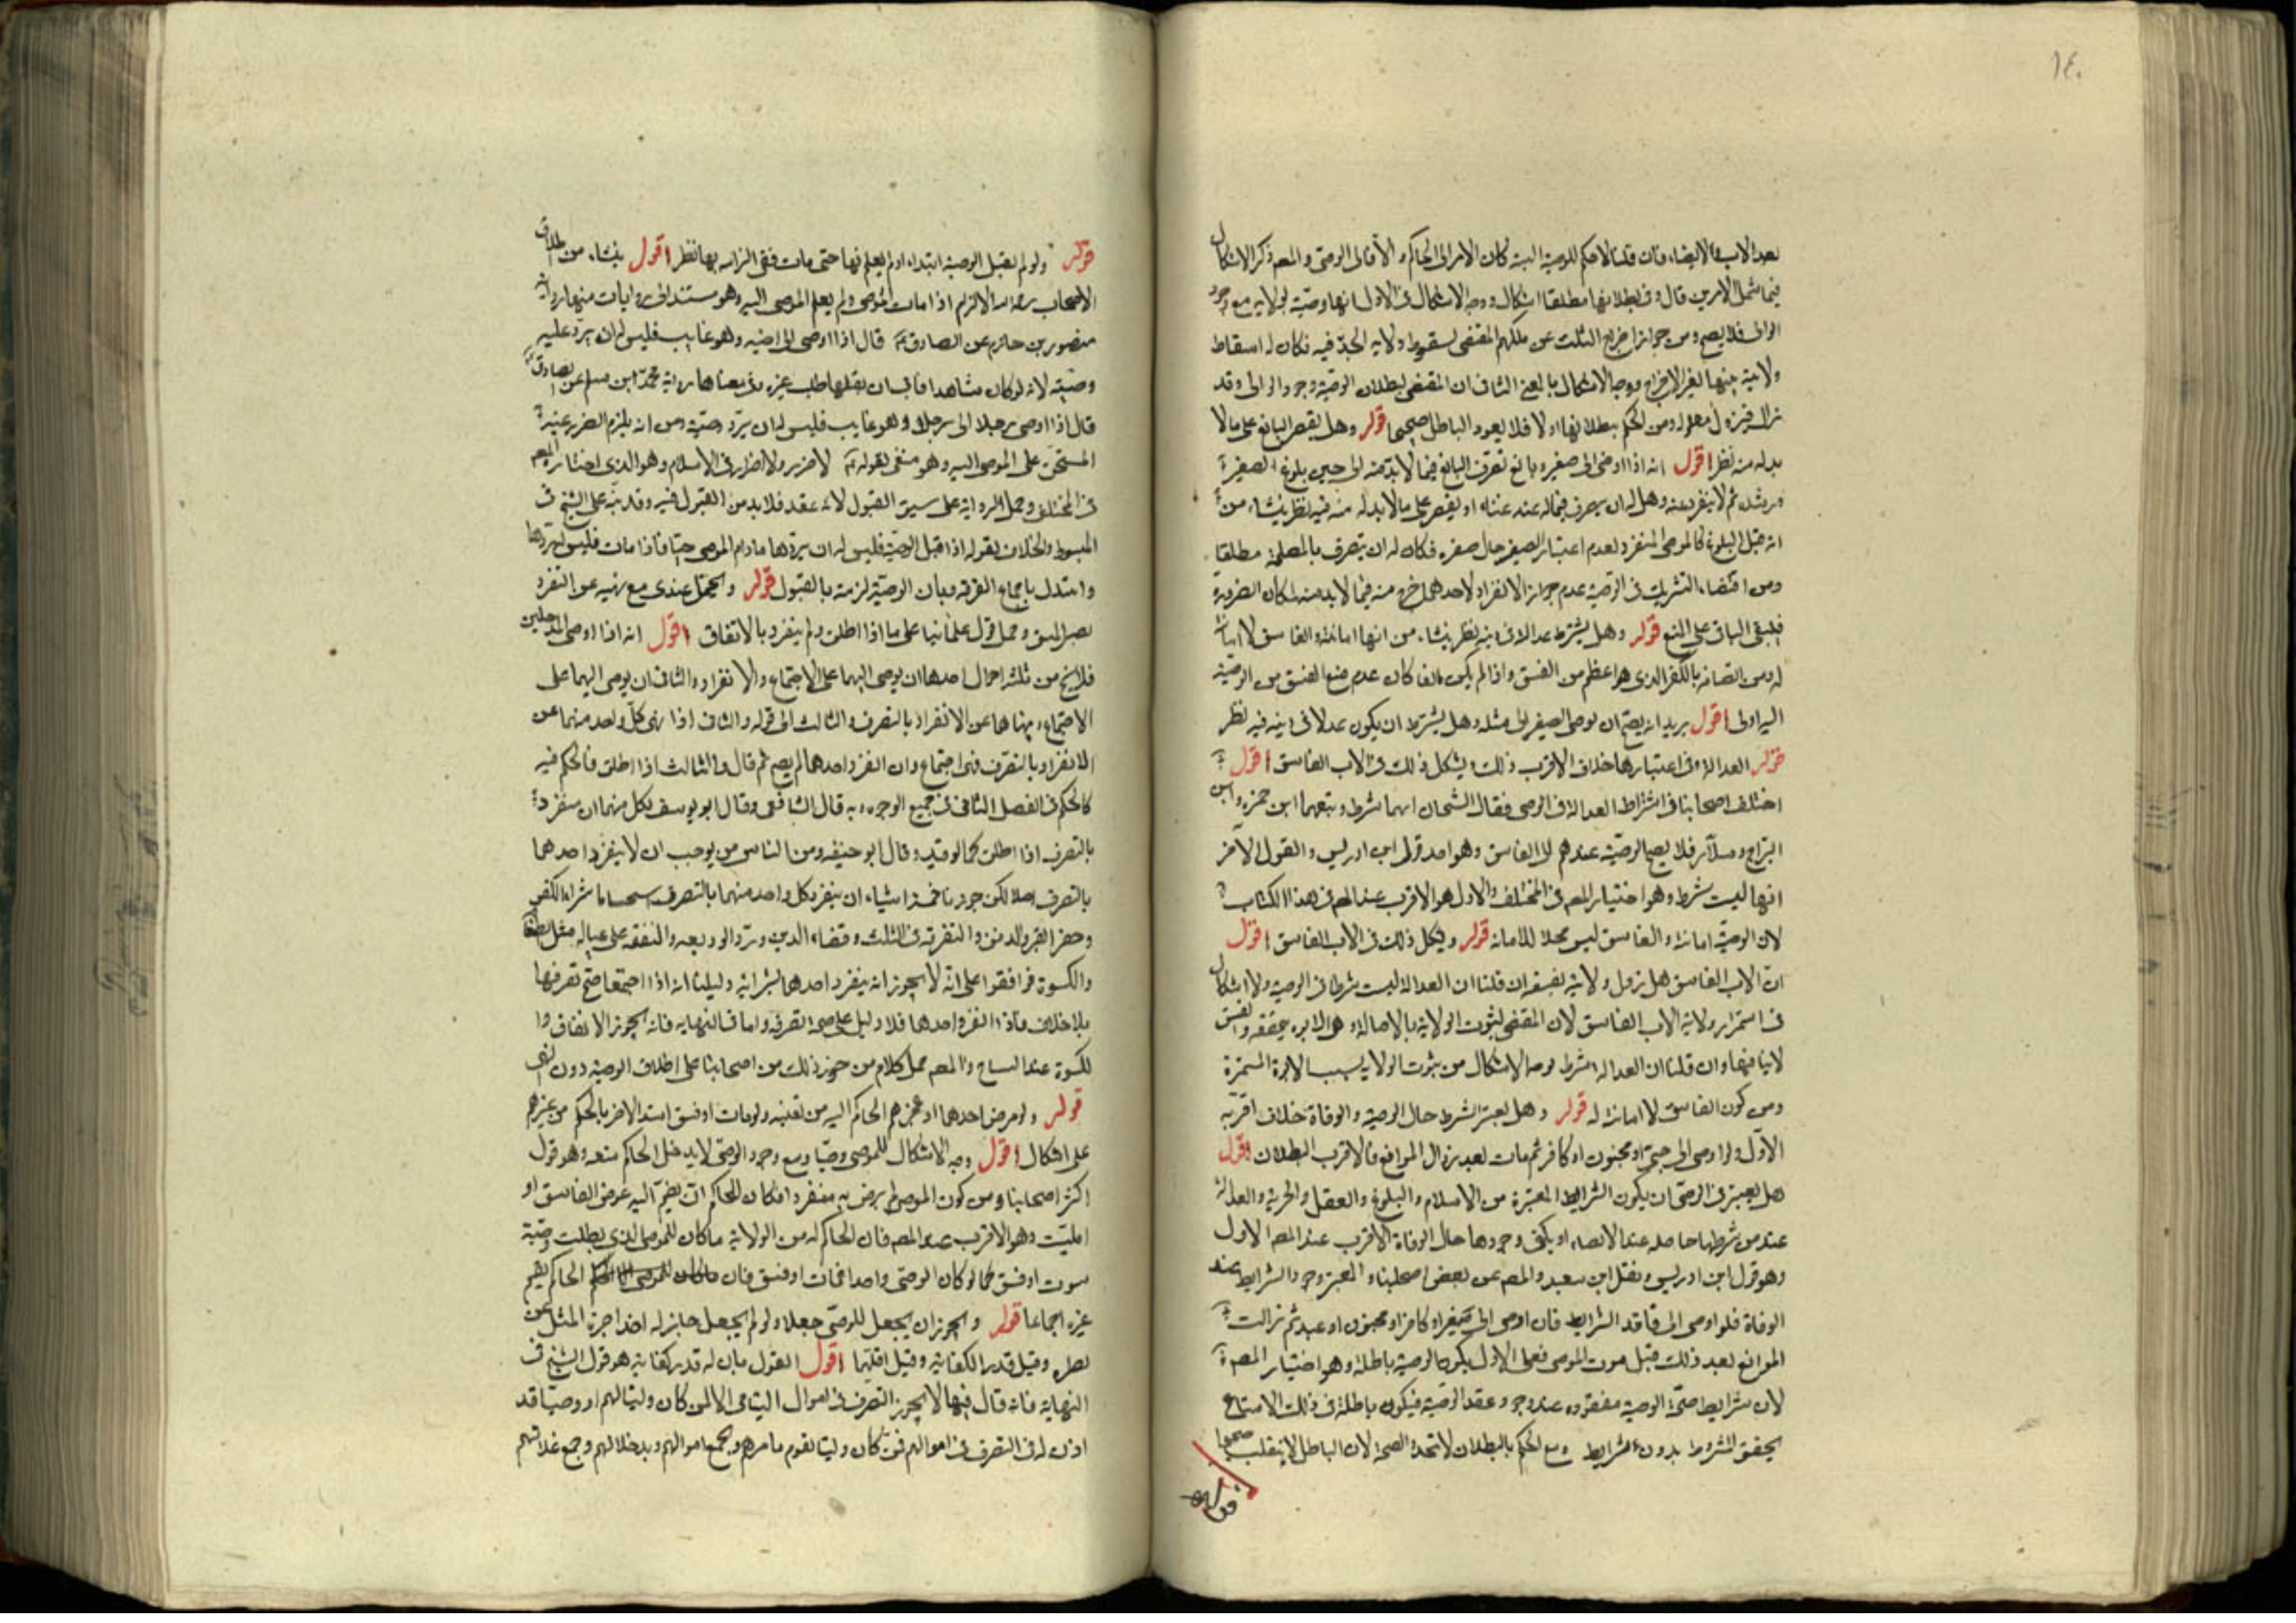 ١٤٠
بعد الاب الايضاء فان قلنا لاحكم للوصية البتة كان الامر الى الحاكم والا فالى الوصي والمصنف ذكر الاشكال
فيما شمل الامرين قال وفي بطلانها مطلقا اشكال ووجه الاشكال في الاول انها وصية بولاية مع وجود
الولي فلا يصح ومن جواز اخراج الثلث عن ملكهم المقتضي لسقوط ولاية الجد فيه فكان له اسقاط
ولايته عنها لغير الاخراج ووجه الاشكال بالمعنى الثاني ان المقتضي لبطلان الوصية وجود الولي وقد
زال فيزول معلوله ومن الحكم ببطلانها اولا فلا يعود الباطل صحيحا قوله وهل يقتصر البالغ على ما لا
بد له منه نظر اقول انه اذا اوصى الى صغير وبالغ تصرف البالغ فيما لا بد منه الى حين بلوغ الصغير
ورشده ثم لا ينفرد عنه وهل له ان يصرف فيما له عنه غناء او يقتصر على ما لا بد له منه فيه نظر ينشاء من
انه قبل البلوغ كالوصي المنفرد لعدم اعتبار الصغير حال صغره فكان له ان يتصرف بالمصلحة مطلقا
ومن اقتضاء التشريك في الوصية عدم جواز الانفراد لاحدهما خرج منه فيما لا بد منه لمكان الضرورة
فيبقى الباقي على المنع قوله وهل يشترط عدالته في دينه نظر ينشاء من انها امانة والفاسق لا امانة
له ومن اتصافه بالكفر الذي هو اعظم من الفسق واذا لم يكن مانعا كان عدم منع الفسق من الوصية
اليه اولى اقول يريد انه يصح ان يوصي الصغير الى مثله وهل يشترط ان يكون عدلا في دينه فيه نظر
قوله العدالة وفي اعتبارها خلاف الاقرب ذلك ويشكل ذلك في الاب الفاسق اقول
اختلف اصحابنا في اشتراط العدالة في الوصي فقال الشيخان انها شرط وتبعهما ابن حمزة وابن
البراج وسلار فلا يصح الوصية عندهم الى الفاسق وهو احد قولي ابن ادريس والقول الاخر
انها ليست شرط وهو اختيار المصنف في المختلف والاول هو الاقرب عند المصنف في هذا الكتاب
لان الوصية امانة والفاسق ليس محلا للامانة قوله ويشكل ذلك في الاب الفاسق اقول
ان الاب الفاسق هل تزول ولايته بفسقه ان قلنا ان العدالة ليست شرطا في الوصية ولا اشكال
في استمرار ولاية الاب الفاسق لان المقتضي لثبوت الولاية بالاصالة هو الابوة متحققة والفسق
لا ينافيها وان قلنا ان العدالة شرط فوجه الاشكال من ثبوت الولاية بسبب الابوة المستمرة
ومن كون الفاسق لا امانة له قوله وهل يعتبر الشرط حال الوصية والوفاة خلاف اقربه
الاول فلو اوصى الى صبي او مجنون او كافر ثم مات بعد زوال الموانع فالاقرب البطلان اقول
هل يعتبر في الوصي ان يكون الشرايط المعتبرة من الاسلام والبلوغ والعقل والحرية والعدالة
عند من شرطها حاصلة عند الايصاء او يكفي وجودها حال الوفاة الاقرب عند المصنف الاول
وهو قول ابن ادريس ونقل ابن سعيد والمصنف عن بعض اصحابنا المعتبر وجود الشرايط عند
الوفاة فلو اوصى الى فاقد الشرايط فان اوصى الى صغير او كافر او مجنون او عبد ثم زالت
الموانع بعد ذلك قبل موت الموصي فعلى الاول يكون الوصية باطلة وهو اختيار المصنف
لان شرايط صحة الوصية مفقودة عند وجود عقد الوصية فيكون باطلة في ذلك لامتناع
تحقق المشروط بدون الشرايط ومع الحكم بالبطلان لا تتجدد الصحة لان الباطل لا ينقلب صحيحا
قوله
قوله ولو لم يقبل الوصية ابتداء او لم يعلم بها حتى مات ففي الزامه بها نظر اقول ينشاء من اطلاق
الاصحاب رحمهم الله الالزام اذا مات الموصي ولم يعلم الموصى اليه وهو مستند الى روايات منها رواية
منصور بن حازم عن الصادق قال اذا اوصى الى اخيه وهو غايب فليس له ان يرد عليه
وصيته لانه لو كان شاهدا فابى ان يقبلها طلب غيره وفي معناها رواية محمد ابن مسلم عن الصادق
قال اذا اوصى رجلا الى رجل وهو غايب فليس له ان يرد وصيته ومن انه يلزم الضرر غير
المستحق على الموصى اليه وهو منفي بقوله لا ضرر ولا اضرار في الاسلام وهو الذي اختاره المصنف
في المختلف وحمل الرواية على سبق القبول لانه عقد فلا بد من القبول فيه وقد نبه على الشيخ في
المبسوط والخلاف بقوله اذا قبل الوصية فليس له ان يردها ما دام الموصي حيا فاذا مات فليس له ردها
واستدل باجماع الفرقة وبان الوصية لزمته بالقبول قوله ويحتمل عندي مع نهيه عن التفرد
وحمل قول علمائنا على ما اذا اطلق ولم ينفرد بالاتفاق اقول انه اذا اوصى الى رجلين
فلا يخ من ثلثة احوال احدها ان يوصي اليهما على الاجتماع والانفراد والثاني ان يوصي اليهما على
الاجتماع وينهاهما عن الانفراد بالتصرف والثالث الى قوله والثاني اذا نهى كل واحد منهما عن
الانفراد بالتصرف فمتى اجتماع وان انفرد احدهما لم يصح ثم قال والثالث اذا اطلق فالحكم فيه
كالحكم في الفصل الثاني في جميع الوجوه وبه قال الشافعي وقال ابو يوسف لكل منهما ان ينفرد
بالتصرف اذا اطلق كما لو قيد وقال ابو حنيفة ومن الناس من يوجب ان لا ينفرد احدهما
بالتصرف اصلا لكن جوزنا خمسة اشياء ان ينفرد كل واحد منهما بالتصرف استحسانا شراء الكفن
وحفر القبر والدفن والتفرقة في الثلث وقضاء الدين ورد الوديعة والنفقة على عياله مثل الطعام
والكسوة فوافقوا على انه لا يجوز انه ينفرد احدهما بشرائه دليلنا انه اذا اجتمعا صح تصرفهما
بلا خلاف واذا انفرد احدهما فلا دليل على صحة تصرفه واما في النهاية فانه يجوز الانفاق و
للكسوة عند التشاح والمصنف حمل كلام من جوز ذلك من اصحابنا على اطلاق الوصية دون النهي
قوله ولو مرض احدهما او عجز ضم الحاكم اليه من يعينه ولو مات او فسق استبد الاخر بالحكم من غير ضم
على اشكال اقول وجه الاشكال للموصي وصيا ومع وجود الوصي لا يدخل الحاكم معه وهو قول
اكثر اصحابنا ومن كون الموصي لم يرض به منفردا فكان للحاكم ان يضم اليه عوض الفاسق او
الميت وهو الاقرب عند المصنف فان الحاكم له من الولاية ما كان للموصي الذي بطلت وصيته
بموت او فسق كما لو كان الوصي واحدا فمات او فسق فان الحاكم يقيم
غيره اجماعا قوله ويجوز ان يجعل للوصي جعلا ولو لم يجعل جاز له اخذ اجرة المثل عن
نظره وقيل قدر الكفاية وقيل اقلهما اقول القول بان له قدر كفايته هو قول الشيخ في
النهاية فانه قال فيها لا يجوز التصرف في اموال اليتامى الا لمن كان وليا لهم او وصيا قد
اذن له في التصرف في اموالهم فمن كان وليا يقوم بامرهم ويجمع اموالهم وسد خلالهم وجمع غلاتهم